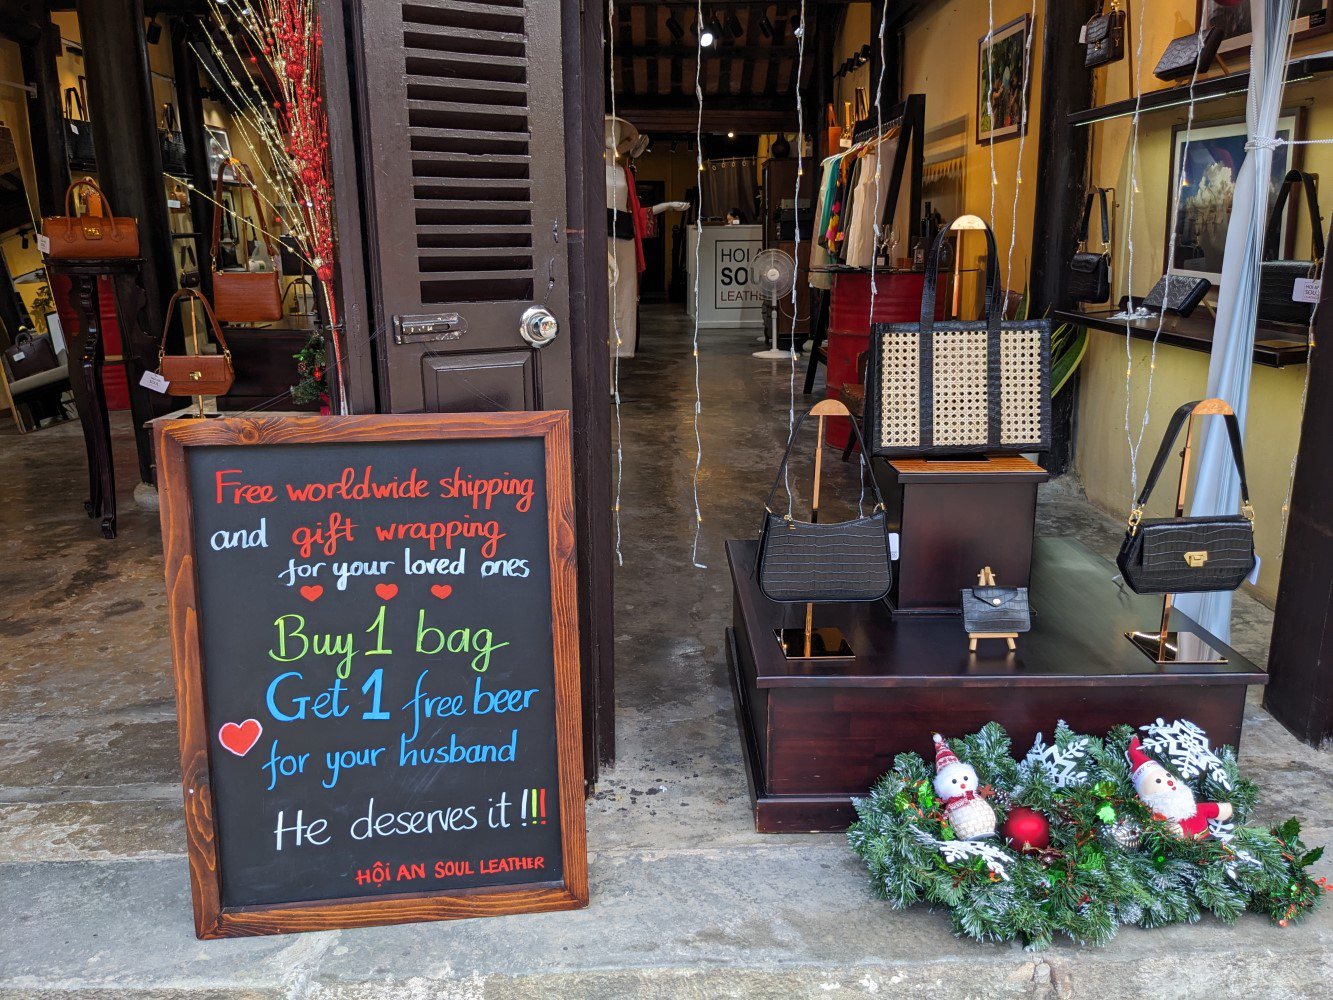 Free worldwide shipping
and gift wrapping
for your loved ones
Buy 1 bag
Get 1 free beer
for your husband
He deserves it !!!
HỘI AN SOUL LEATHER
HOI
SOU
LEATHE